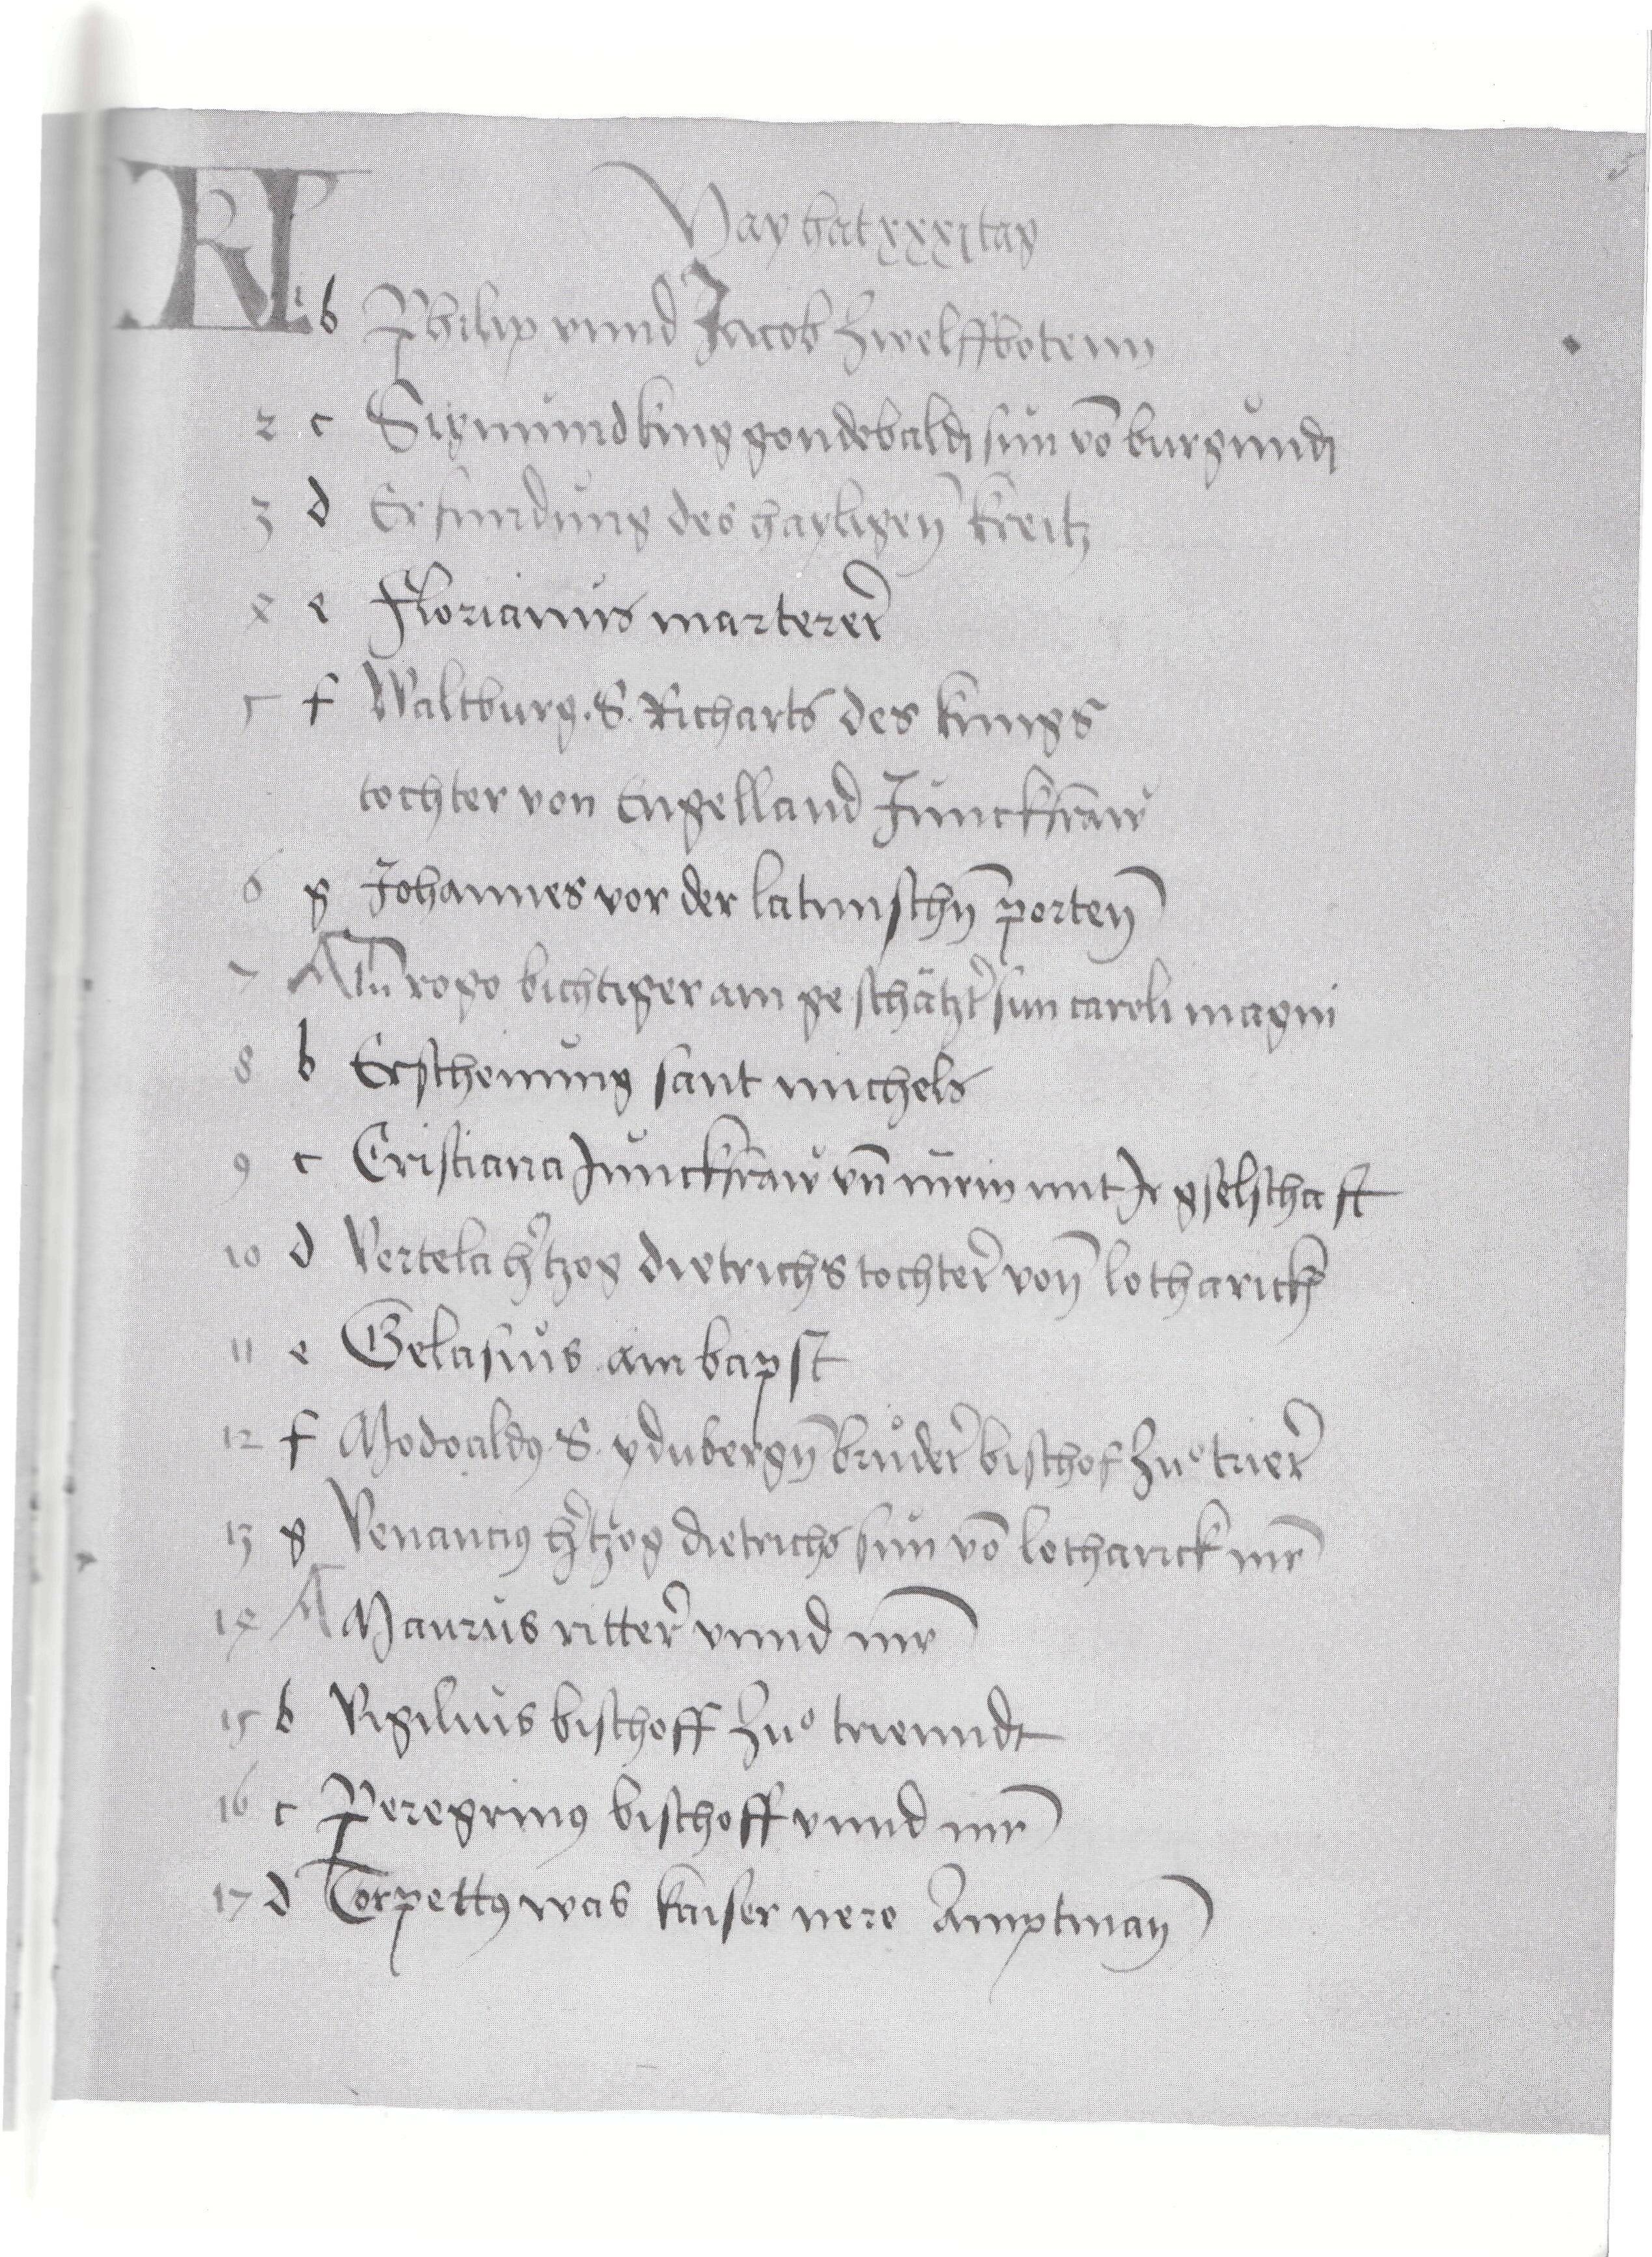 KL May hat xxxi tag
1 b Philip vnnd Jacob Zwelffbotenn
2 c Sigmŭnd king gondebaldi sŭn vō burgŭndi
3 d Erfindŭng des hayligen̄ kreitz
4 e Florianŭs marterer̄
5 f Waltburg. S. Richarts des kings
tochter von Engelland Jŭnckfraw
6 g Johannes vor der latinischn̄ porten̄
7 A rogo bichtiger ain ge schätzt̄ sun caroli magni
8 b Erscheinŭng sant michels
9 c Cristiana Jŭnckfraw vn̄ mrin mit Jr gselschafft
10 d Vertela h̄tzog dietrichs tochter̄ von̄ lotharick
11 e Gelasiŭs ain bapst
12 f Modoaldꝯ S. ydubergn̄ brůder̄ bischof zuͦ trier̄
13 g Venanciꝯ h̄tzog dietrichs sŭn vō lotharick mr̄
14 A Maurŭs ritter̄ vnnd mr̄
15 b Vigiliŭs bischoff zuͦ trienndt
16 c Peregrinꝯ bischoff vnnd mr̄
17 d Torpettꝯ was kaiser nero Amptman̄